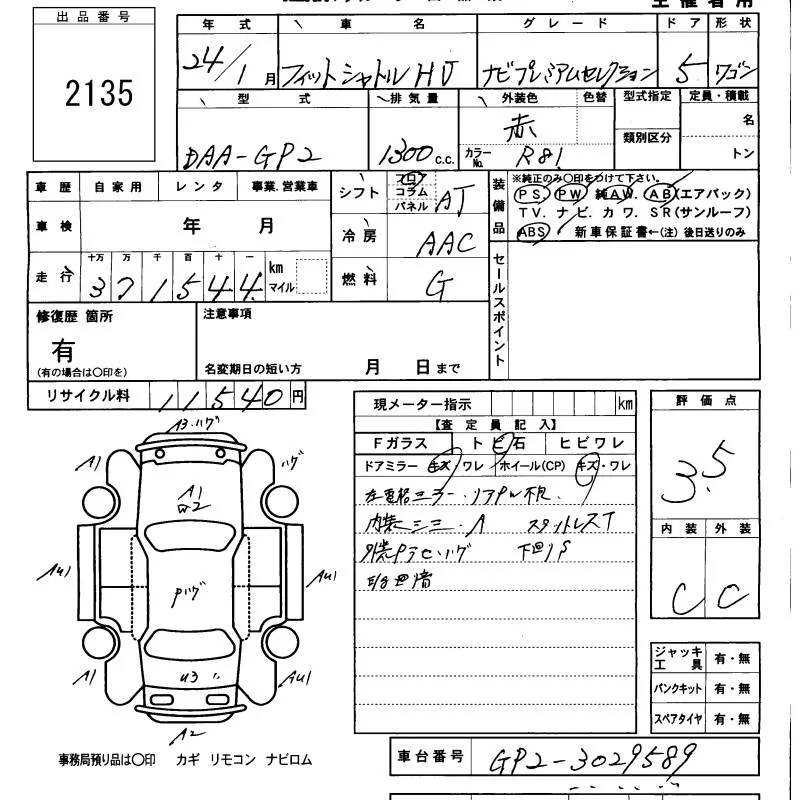 主催者用
出品番号
2135
年式 車名 グレード ドア 形状
24/1月 フィットシャトルHV ナビプレミアムセレクション 5 ワゴン
型式 排気量 外装色 色替 型式指定 定員・積載
DAA-GP2 1300c.c. 赤 カラーNo. R81 類別区分 名
トン
車歴 自家用 レンタ 事業.営業車
シフト フロ コラム パネル AT
装備品 ※純正のみ〇印をつけて下さい。
PS. PW 純AW. AB(エアバック)
TV. ナビ. カワ. SR(サンルーフ)
ABS 新車保証書←(注) 後日送りのみ
車検 年 月
冷房 AAC
走行 十万 万 千 百 十 一
371544 km マイル
燃料 G
セールスポイント
修復歴 箇所
有
(有の場合は〇印を)
注意事項
名変期日の短い方 月 日まで
リサイクル料 11540円
現メーター指示 km
【査定員記入】
Fガラス トビ石 ヒビワレ
ドアミラー キズ・ワレ ホイール(CP) キズ・ワレ
左電格ミラー・リアPW不良.
内装シミ・A スタットレスT
下回りS
評価点
3.5
内装 外装
C C
A3.ハゲ
A1 ハゲ
A1
AU1 AU1
Pハゲ
A1 U3 AU1
A2
ジャッキ工具 有・無
パンクキット 有・無
スペアタイヤ 有・無
事務局預り品は〇印 カギ リモコン ナビロム
車台番号 GP2-3029589